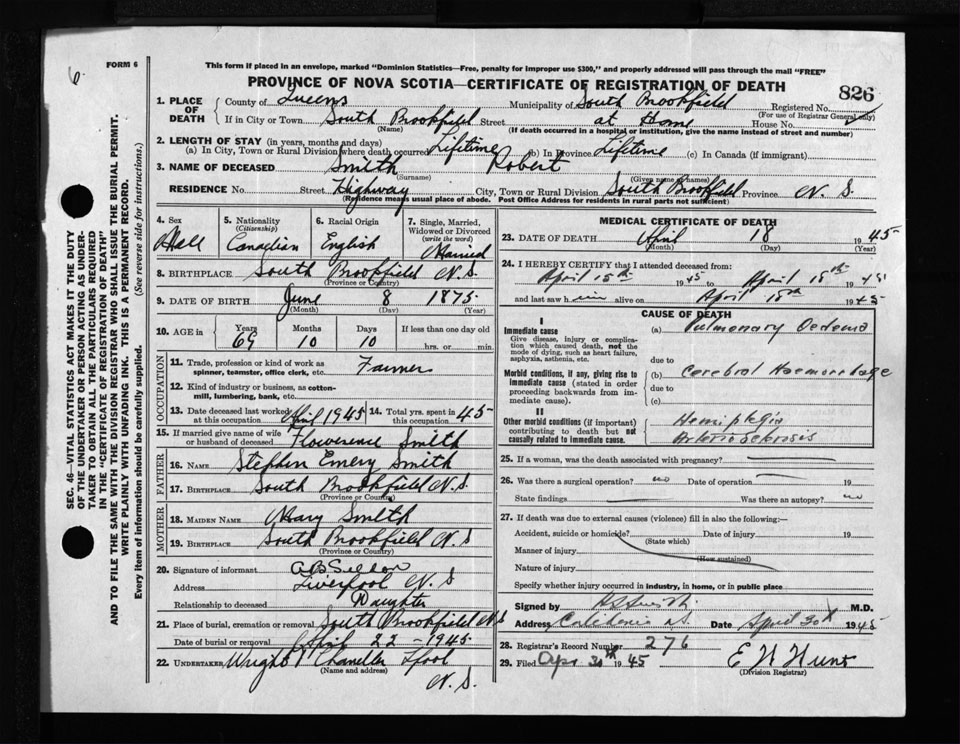 6
FORM 6
This form if placed in an envelope, marked "Dominion Statistics—Free, penalty for improper use $300," and properly addressed will pass through the mail "FREE"
PROVINCE OF NOVA SCOTIA—CERTIFICATE OF REGISTRATION OF DEATH
826
1. PLACE OF DEATH County of Queens Municipality of South Brookfield Registered No.
(For use of Registrar General only)
If in City or Town South Brookfield Street at Home House No.
(Name) (If death occurred in a hospital or institution, give the name instead of street and number)
2. LENGTH OF STAY (in years, months and days)
(a) In City, Town or Rural Division where death occurred Lifetime (b) In Province Lifetime (c) In Canada (if immigrant)
3. NAME OF DECEASED Smith Robert
(Surname) (Given name or names)
RESIDENCE No. Street Highway City, Town or Rural Division South Brookfield Province N. S.
(Residence means usual place of abode. Post Office Address for residents in rural parts not sufficient)
4. Sex Male
5. Nationality (Citizenship) Canadian
6. Racial Origin English
7. Single, Married, Widowed or Divorced (write the word) Married
8. BIRTHPLACE South Brookfield N. S.
(Province or Country)
9. DATE OF BIRTH June 8 1875
(Month) (Day) (Year)
10. AGE in Years 69 Months 10 Days 10 If less than one day old hrs. or min.
OCCUPATION
11. Trade, profession or kind of work as spinner, teamster, office clerk, etc. Farmer
12. Kind of industry or business, as cotton-mill, lumbering, bank, etc.
13. Date deceased last worked at this occupation April 1945 14. Total yrs. spent in this occupation 45
15. If married give name of wife or husband of deceased Flowerence Smith
FATHER
16. NAME Stephen Emery Smith
17. BIRTHPLACE South Brookfield N. S.
(Province or Country)
MOTHER
18. MAIDEN NAME Mary Smith
19. BIRTHPLACE South Brookfield N. S
(Province or Country)
20. Signature of informant
Address Liverpool N. S
Relationship to deceased Daughter
21. Place of burial, cremation or removal South Brookfield N S
Date of burial or removal April 22 - 1945
22. UNDERTAKER Wright Chandler Lpool
(Name and address)
N. S.
MEDICAL CERTIFICATE OF DEATH
23. DATE OF DEATH April 18 1945
(Month) (Day) (Year)
24. I HEREBY CERTIFY that I attended deceased from:
April 15th 1945 to April 18th 1945
and last saw him alive on April 18th 1945
CAUSE OF DEATH
I
Immediate cause (a) Pulmonary Oedema
Give disease, injury or complication which caused death, not the mode of dying, such as heart failure, asphyxia, asthenia, etc.
due to
Morbid conditions, if any, giving rise to immediate cause (stated in order proceeding backwards from immediate cause). (b) Cerebral Haemorrhage
due to
(c)
II
Other morbid conditions (if important) contributing to death but not causally related to immediate cause. Hemiplegia
Arteriosclerosis
25. If a woman, was the death associated with pregnancy?
26. Was there a surgical operation? no Date of operation 19
State findings Was there an autopsy? no
27. If death was due to external causes (violence) fill in also the following:—
Accident, suicide or homicide? Date of injury 19
(State which)
Manner of injury
(How sustained)
Nature of injury
Specify whether injury occurred in industry, in home, or in public place
Signed by M.D.
Address Caledonia N.S. Date April 30th 1945
28. Registrar's Record Number 276
29. Filed Apr 30th 1945 E N Hunt
(Division Registrar)
SEC. 46—VITAL STATISTICS ACT MAKES IT THE DUTY
OF THE UNDERTAKER OR PERSON ACTING AS UNDER-
TAKER TO OBTAIN ALL THE PARTICULARS REQUIRED
IN THE "CERTIFICATE OF REGISTRATION OF DEATH"
AND TO FILE THE SAME WITH THE DIVISION REGISTRAR WHO SHALL ISSUE THE BURIAL PERMIT.
WRITE PLAINLY WITH UNFADING INK. THIS IS A PERMANENT RECORD.
Every item of information should be carefully supplied. (See reverse side for instructions.)